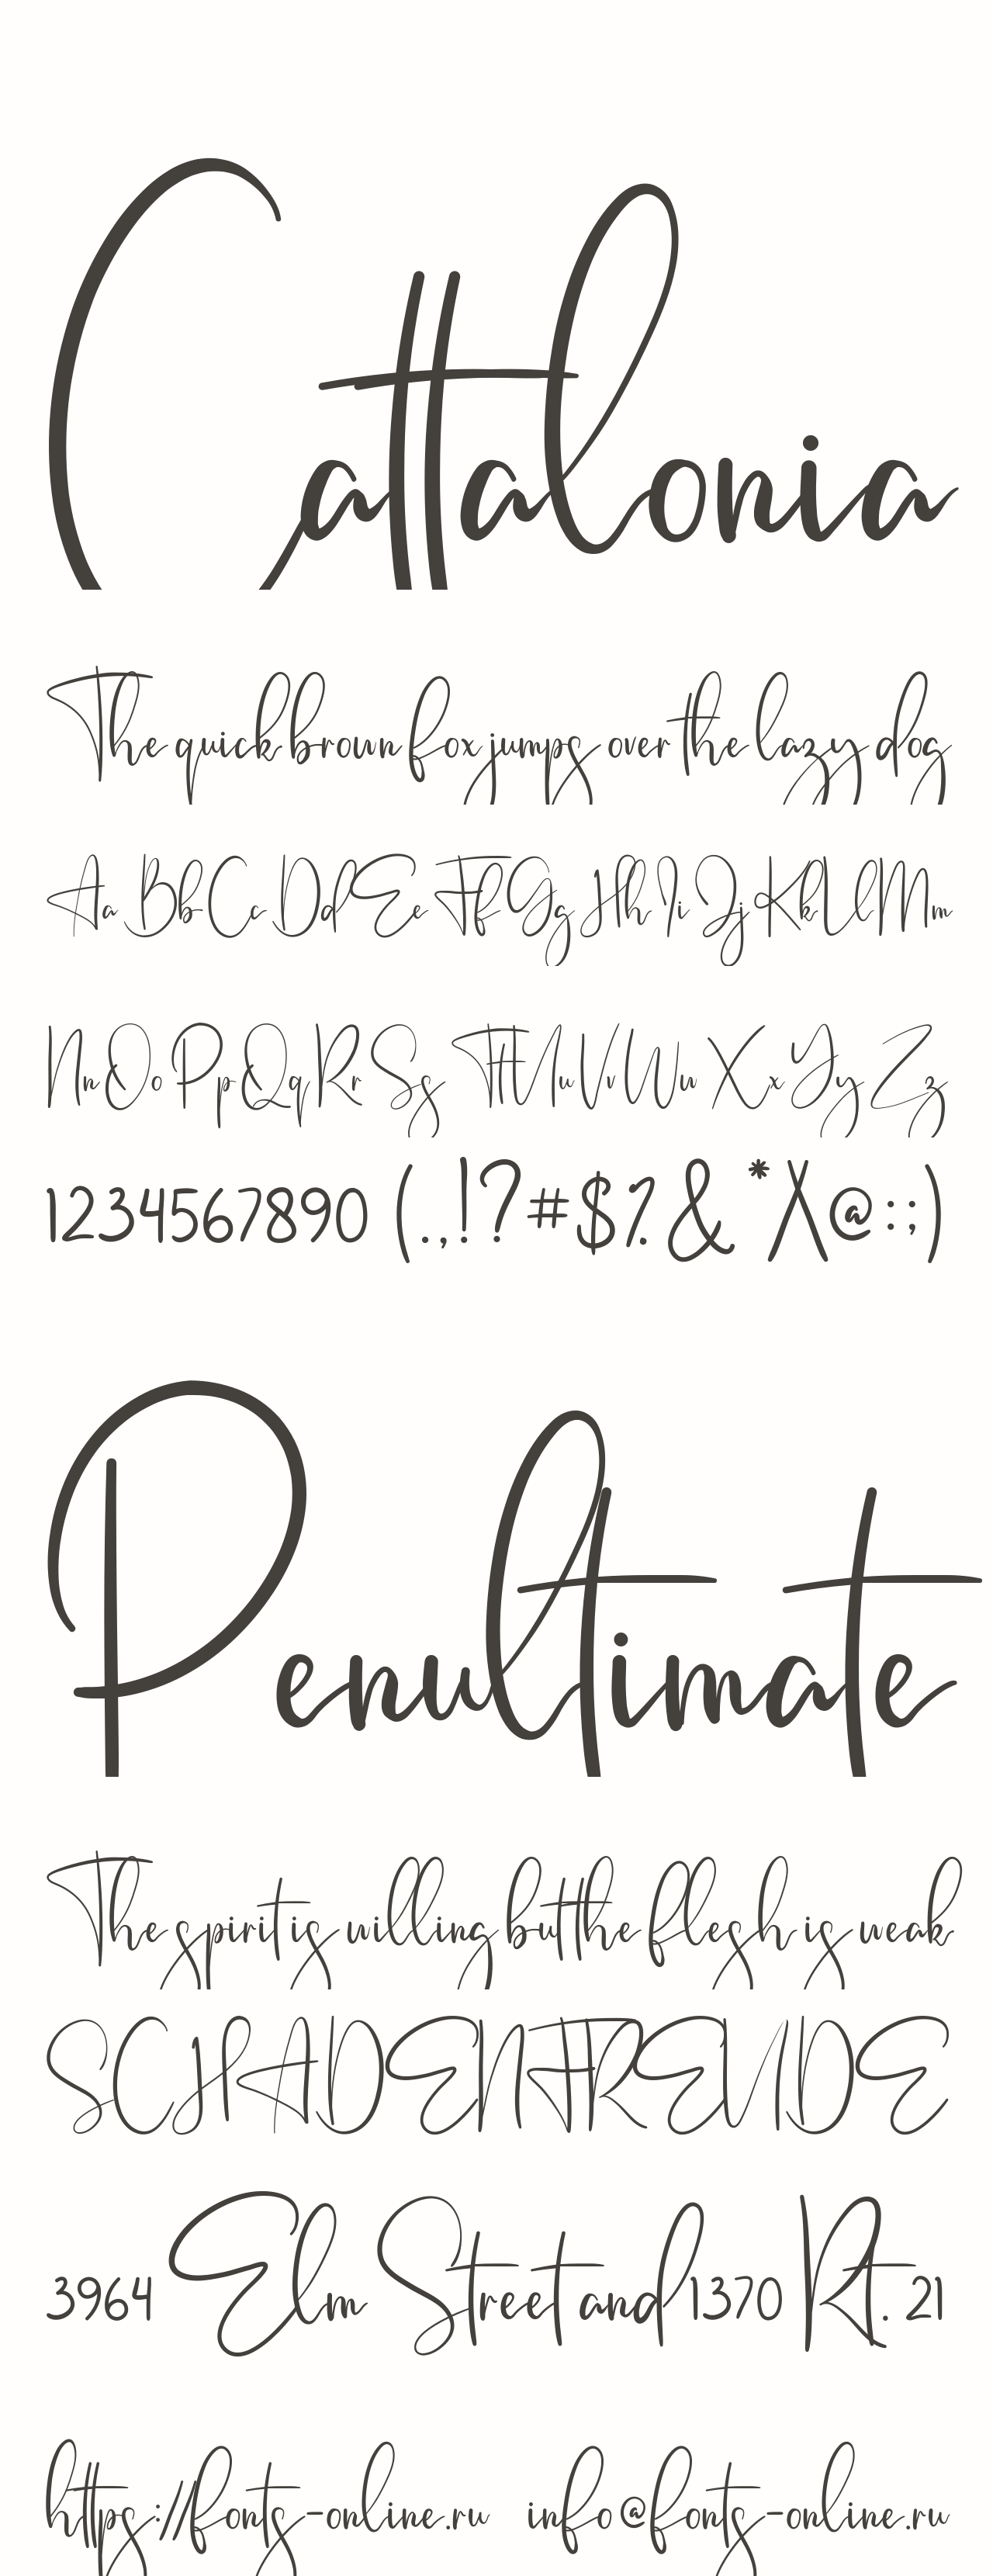 Cattalonia
The quick brown fox jumps over the lazy dog
Aa Bb Cc Dd Ee Ff Gg Hh Ii Jj Kk Ll Mm
Nn Oo Pp Qq Rr Ss Tt Uu Vv Ww Xx Yy Zz
1234567890 (.,!?#$% & *X@:;)
Penultimate
The spirit is willing but the flesh is weak
SCHADENFREUDE
3964 Elm Street and 1370 Rt. 21
https://fonts-online.ru info@fonts-online.ru